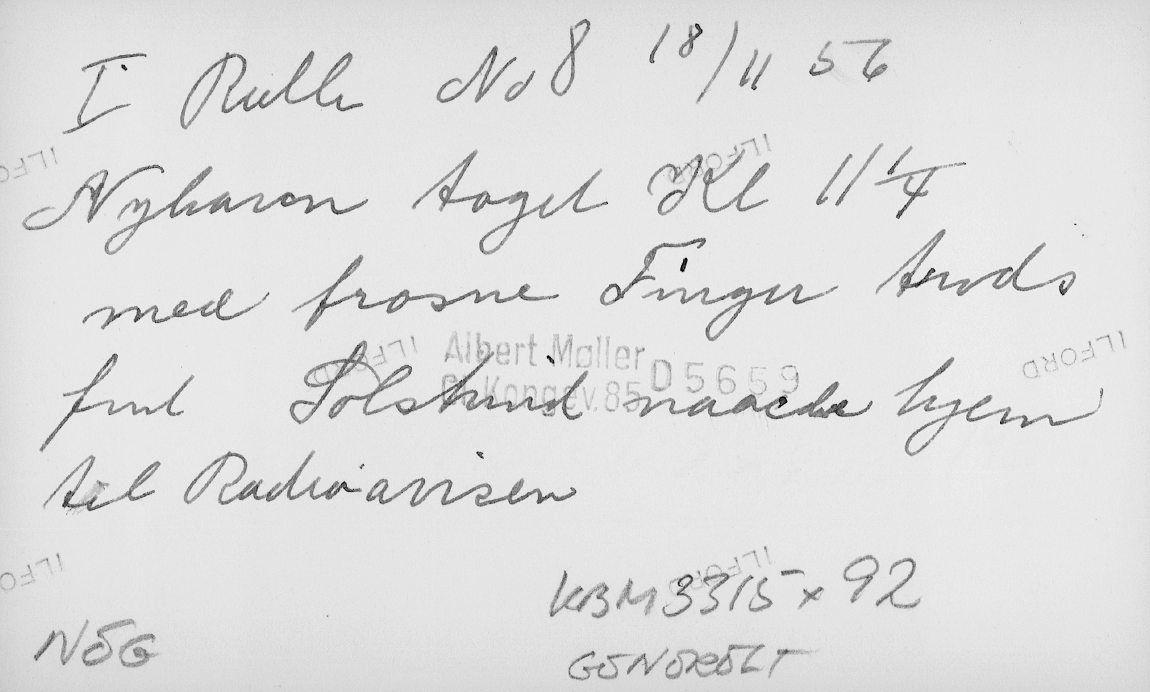 I Rulle No 8 18/11 56
Nyhavn taget Kl 11 1/4
med frosne Finger trods
fint Solskind naaede hjem
til Radioavisen
Albert Møller
Gl. Kongev. 85
D5659
KBM 3315 x 92
NÖG
GENERELT
ILFORD
ILFORD
ILFORD
ILFORD
ILFORD
ILFORD